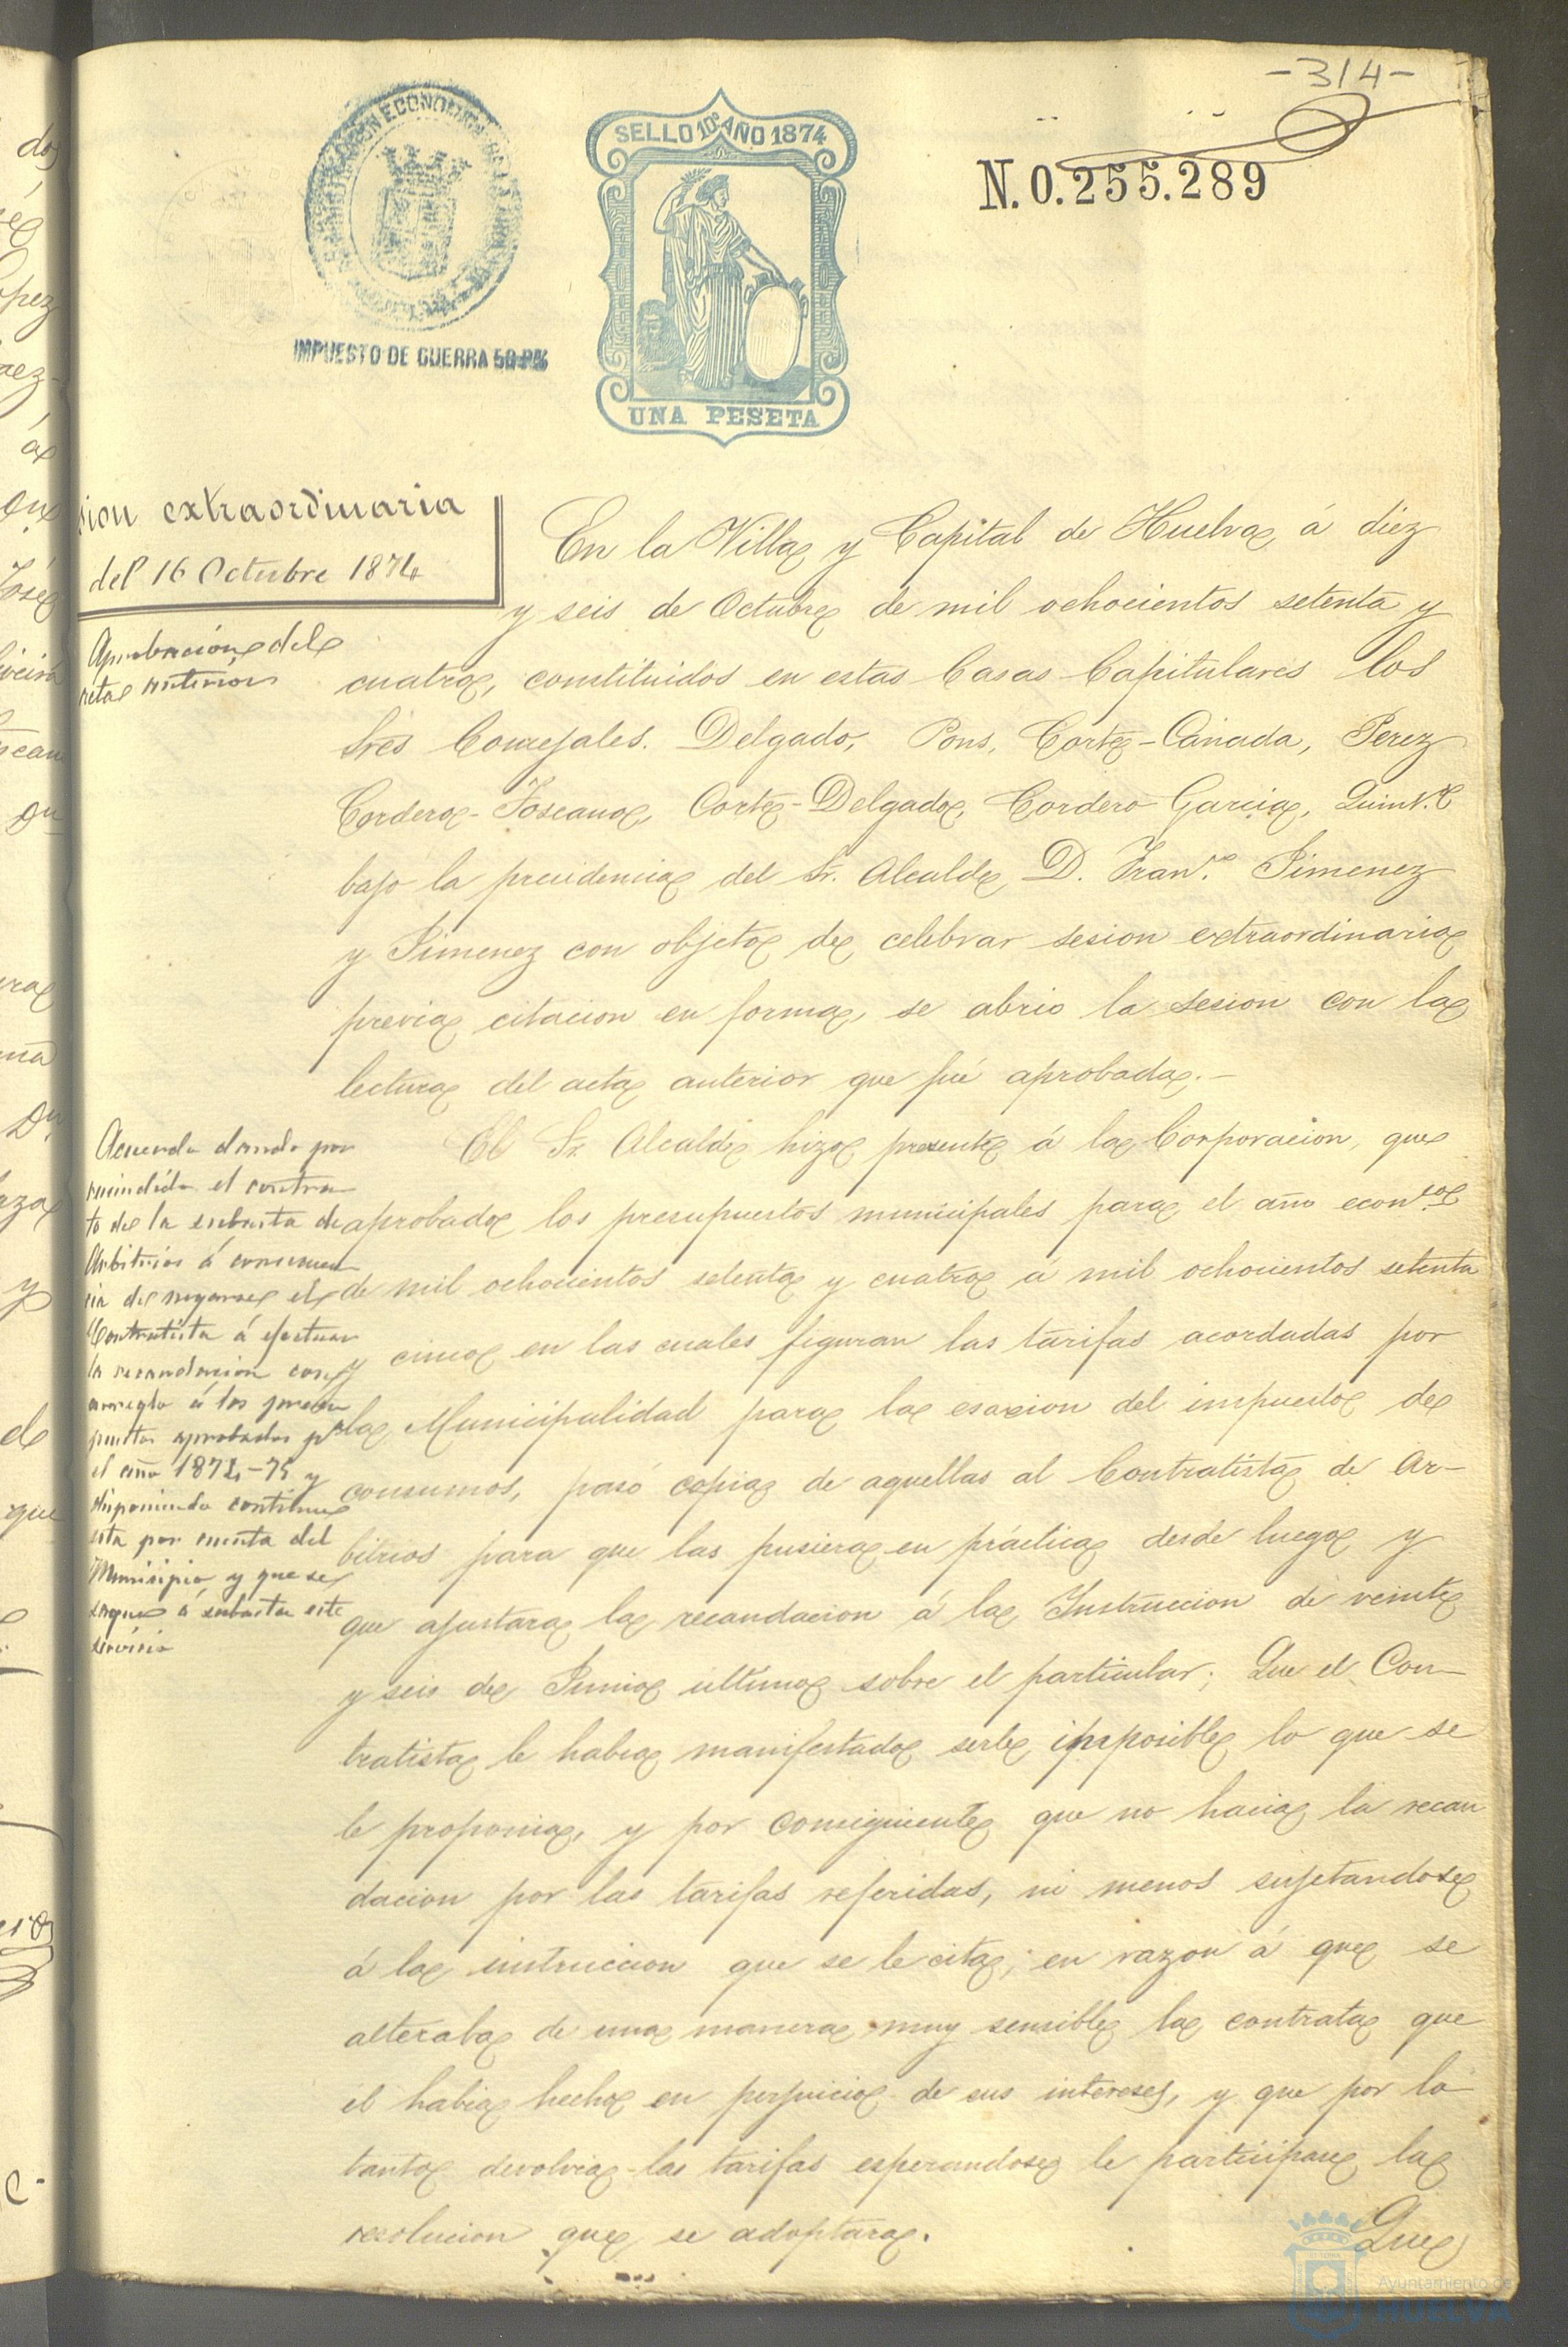 -314-
ADMINISTRACION ECONOMICA
SELLO 10º AÑO 1874
N.0.255.289
IMPUESTO DE GUERRA 50 P%
UNA PESETA
sion extraordinaria
del 16 Octubre 1874
Aprobacion del
acta anterior
En la Villa y Capital de Huelva á diez
y seis de Octubre de mil ochocientos setenta y
cuatro, constituidos en estas Casas Capitulares los
Sres Concejales. Delgado, Pons, Corte-Cañada, Perez
Cordero-Toscano, Corte-Delgado, Cordero Garcia, Quint.º
bajo la presidencia del Sr. Alcalde D. Fran.co Jimenez
y Jimenez con objeto de celebrar sesion extraordinaria
previa citacion en forma, se abrio la sesion con la
lectura del acta anterior que fué aprobada.-
Acuerdo dando por
rescindido el contra
to de la subasta de
Arbitrios á consecuen
cia de negarse el
Contratista á efectuar
la recaudacion con
arreglo á los presu
puestos aprobados p.ª
el año 1874-75 y
disponiendo continue
esta por cuenta del
Municipio y que se
saque á subasta este
servicio
El Sr. Alcalde hizo presente á la Corporacion, que
aprobado los presupuestos municipales para el año econ.co
de mil ochocientos setenta y cuatro á mil ochocientos setenta
y cinco en las cuales figuran las tarifas acordadas por
la Municipalidad para la esaccion del impuesto de
consumos, pasó copia de aquellas al Contratista de Ar-
bitrios para que las pusiera en práctica desde luego y
que ajustara la recaudacion á la Instruccion de veinte
y seis de Junio ultimo sobre el particular; Que el Con-
tratista le habia manifestado serle imposible lo que se
le proponia, y por consiguiente que no hacia la recau
dacion por las tarifas referidas, ni menos sujetandose
á la instruccion que se le cita; en razon á que se
alteraba de una manera muy sensible la contrata que
el habia hecho en perjuicio de sus intereses, y que por lo
tanto devolvia las tarifas esperandose le participare la
resolucion que se adoptara.
Que
Ayuntamiento de
HUELVA